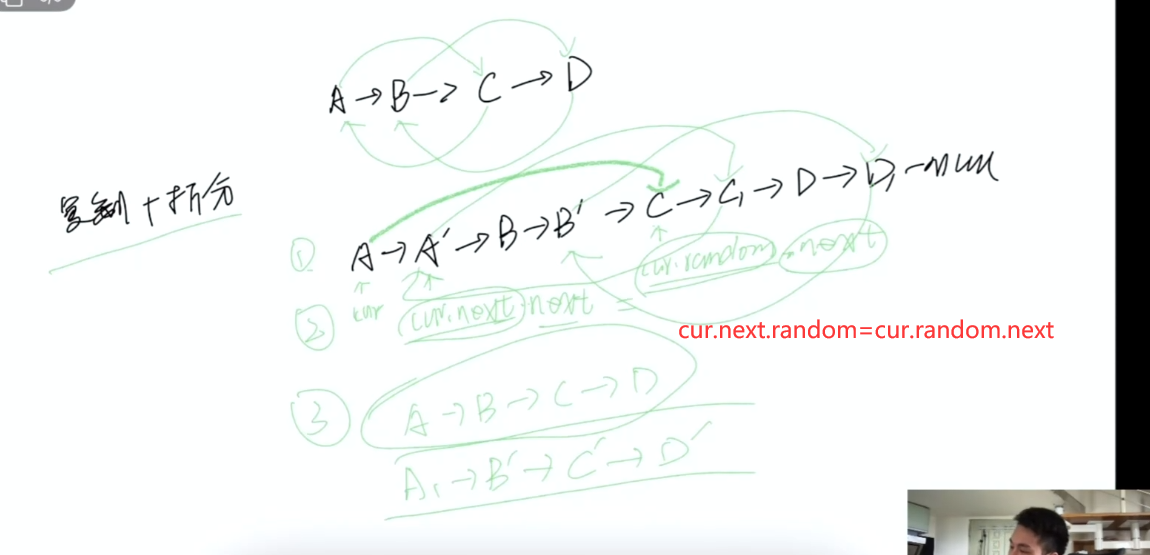 A → B → C → D
复制 + 拆分
① A → A' → B → B' → C → C₁ → D → D₁ → null
cur
② cur.next.next = cur.random.next
cur.next.random=cur.random.next
③ A → B → C → D
A₁ → B' → C' → D'